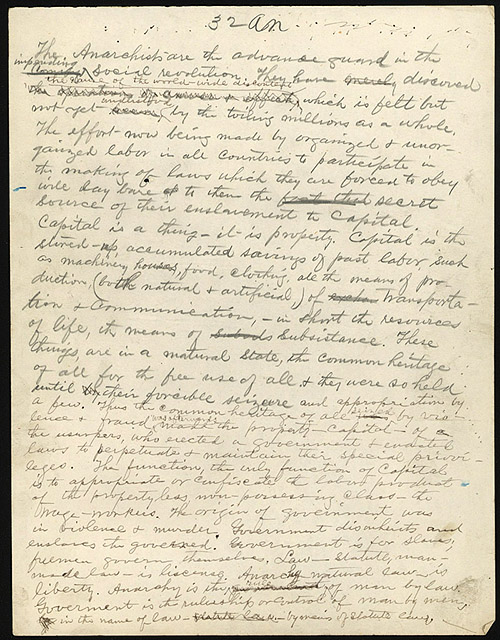 32 an
The Anarchists are the advance guard in the
impending
social revolution. They have discovered
the cause of the world-wide discontent
which is felt but
understood
not yet by the toiling millions as a whole.
The effort now being made by organized & unor-
ganized labor in all countries to participate in
the making of laws which they are forced to obey
will lay bare to them the secret
source of their enslavement to Capital.
Capital is a thing - it is property. Capital is the
stored-up accumulated savings of past labor such
as machinery, houses, food, clothing, all the means of pro-
duction, (both natural & artificial) of transporta-
tion & communication, - in short the resources
of life, the means of subsistance. These
things, are in a natural state, the common heritage
of all for the free use of all & they were so held
until their forcible seizure and appropriation by
a few. Thus the common heritage of all by vio-
lence & fraud the property - capital - of
the usurpers, who erected a government & enacted
laws to perpetuate & maintain their special privi-
leges. The function, the only function of Capital
is to appropriate or confiscate the labor product
of the propertyless, non-possessing class - the
wage-workers. The origin of government was
in violence & murder. Government disinherits and
enslaves the governed. Government is for slaves,
freemen govern themselves, Law - Statute, man-
made law - is license, Anarchy natural law is
liberty. Anarchy is the of man by law.
Goverment is the rulership or control of man by men,
in the name of law - by means of statute law,